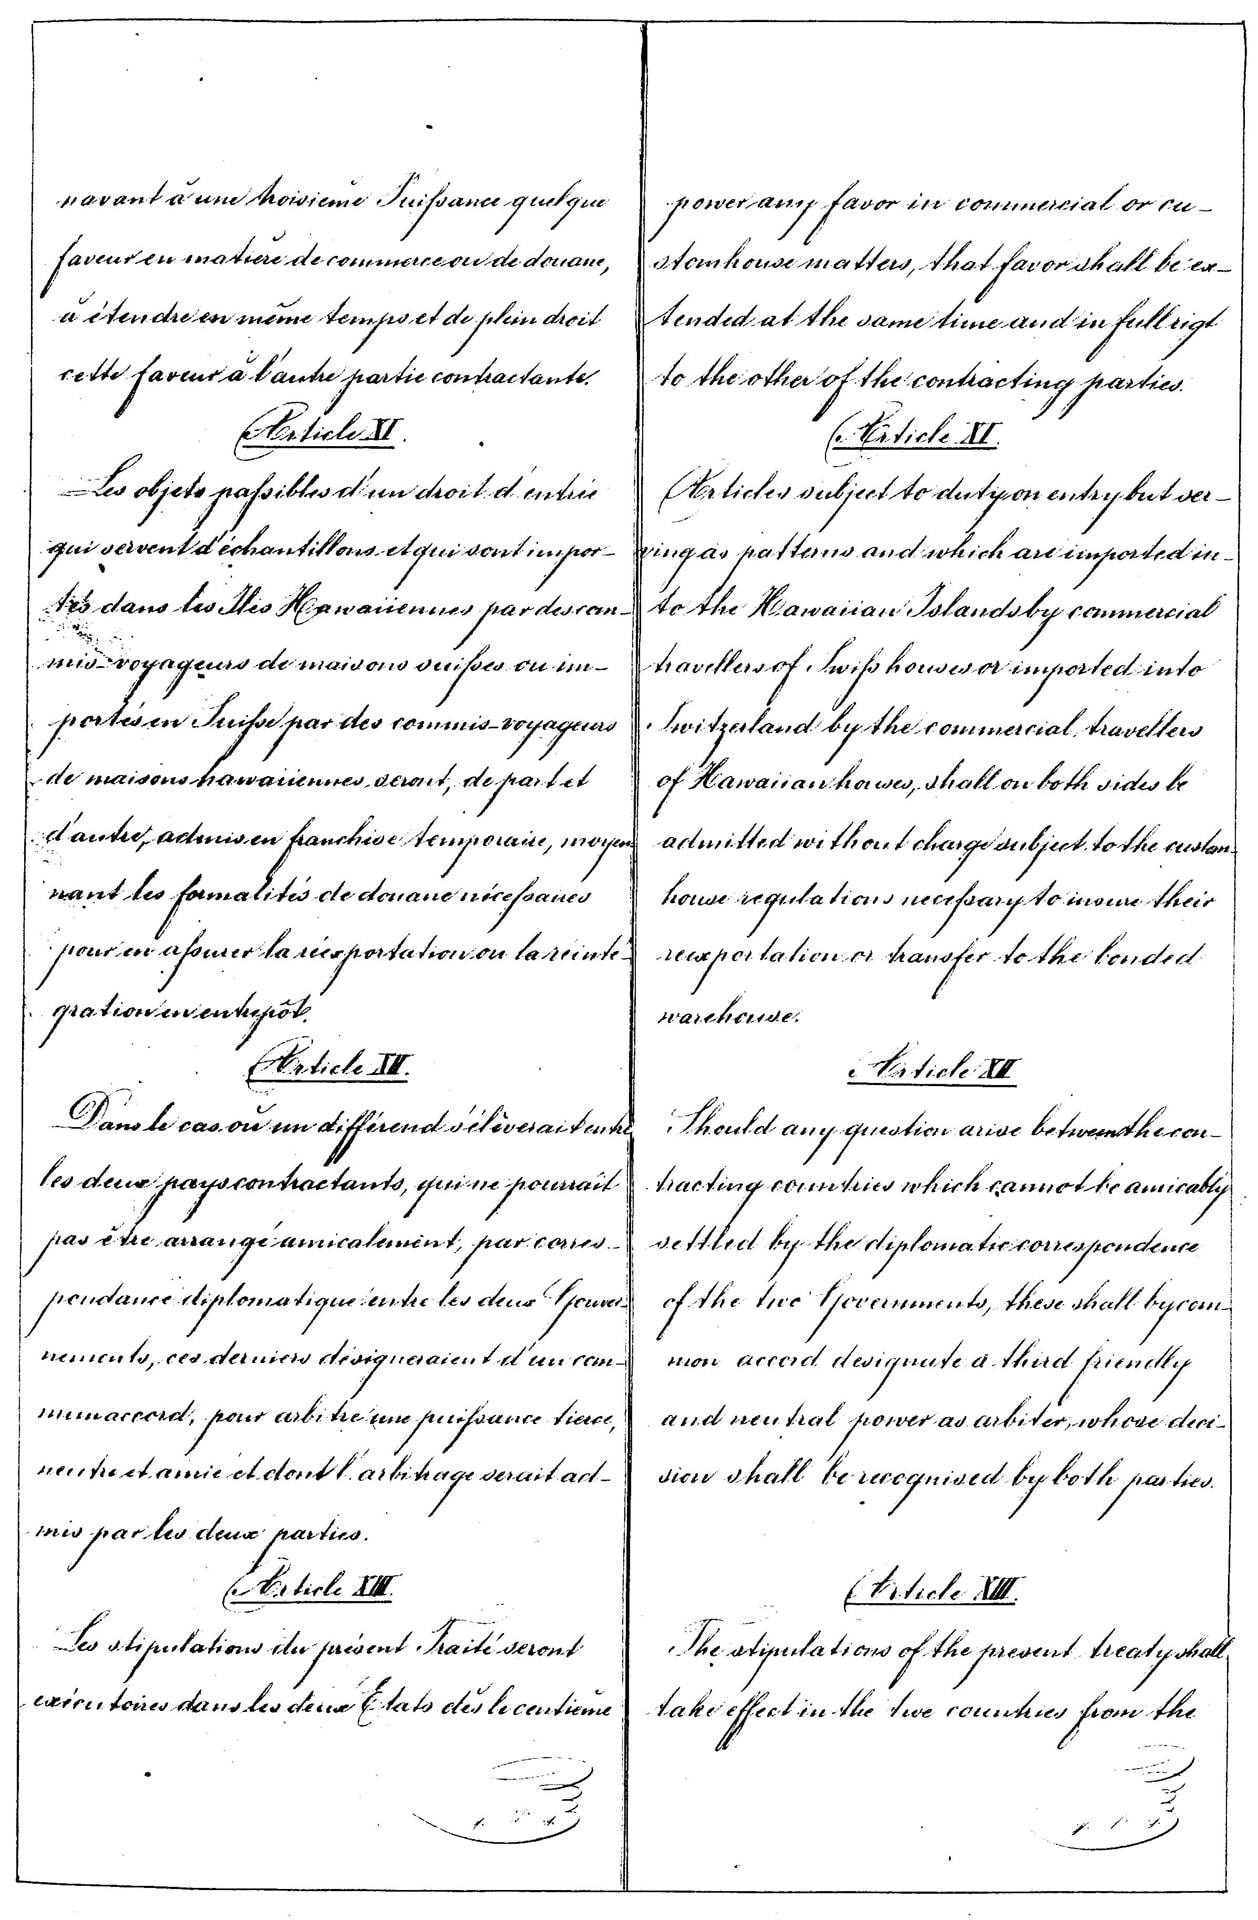 navant à une troisième Puissance quelque
faveur en matière de commerce ou de douane,
à étendre en même temps et de plein droit
cette faveur à l'autre partie contractante.
Article XI.
Les objets passibles d'un droit d'entrée
qui servent d'échantillons et qui sont impor-
tés dans les Iles Hawaiiennes par des com-
mis-voyageurs de maisons suisses ou im-
portés en Suisse par des commis-voyageurs
de maisons hawaiiennes seront, de part et
d'autre, admis en franchise temporaire, moyen
nant les formalités de douane nécessaires
pour en assurer la réexportation ou la réinté-
gration en entrepôt.
Article XII.
Dans le cas où un différend s'élèverait entre
les deux pays contractants, qui ne pourrait
pas être arrangé amicalement, par corres-
pondance diplomatique entre les deux Gouver-
nements, ces derniers désigneraient d'un com-
mun accord, pour arbitre une puissance tierce,
neutre et amie et dont l'arbitrage serait ad-
mis par les deux parties.
Article XIII.
Les stipulations du présent Traité seront
exécutoires dans les deux Etats dès le centième
power any favor in commercial or cu-
stomhouse matters, that favor shall be ex-
tended at the same time and in full rigt
to the other of the contracting parties.
Article XI.
Articles subject to duty on entry but ser-
ving as patterns and which are imported in-
to the Hawaiian Islands by commercial
travellers of Swiss houses or imported into
Switzerland by the commercial travellers
of Hawaiian houses, shall on both sides be
admitted without charge subject to the custom-
house regulations necessary to insure their
reexportation or transfer to the bonded
warehouse.
Article XII
Should any question arise between the con-
tracting countries which cannot be amicably
settled by the diplomatic correspondence
of the two Governments, these shall by com-
mon accord designate a third friendly
and neutral power as arbiter, whose deci-
sion shall be recognised by both parties.
Article XIII.
The stipulations of the present treaty shall
take effect in the two countries from the